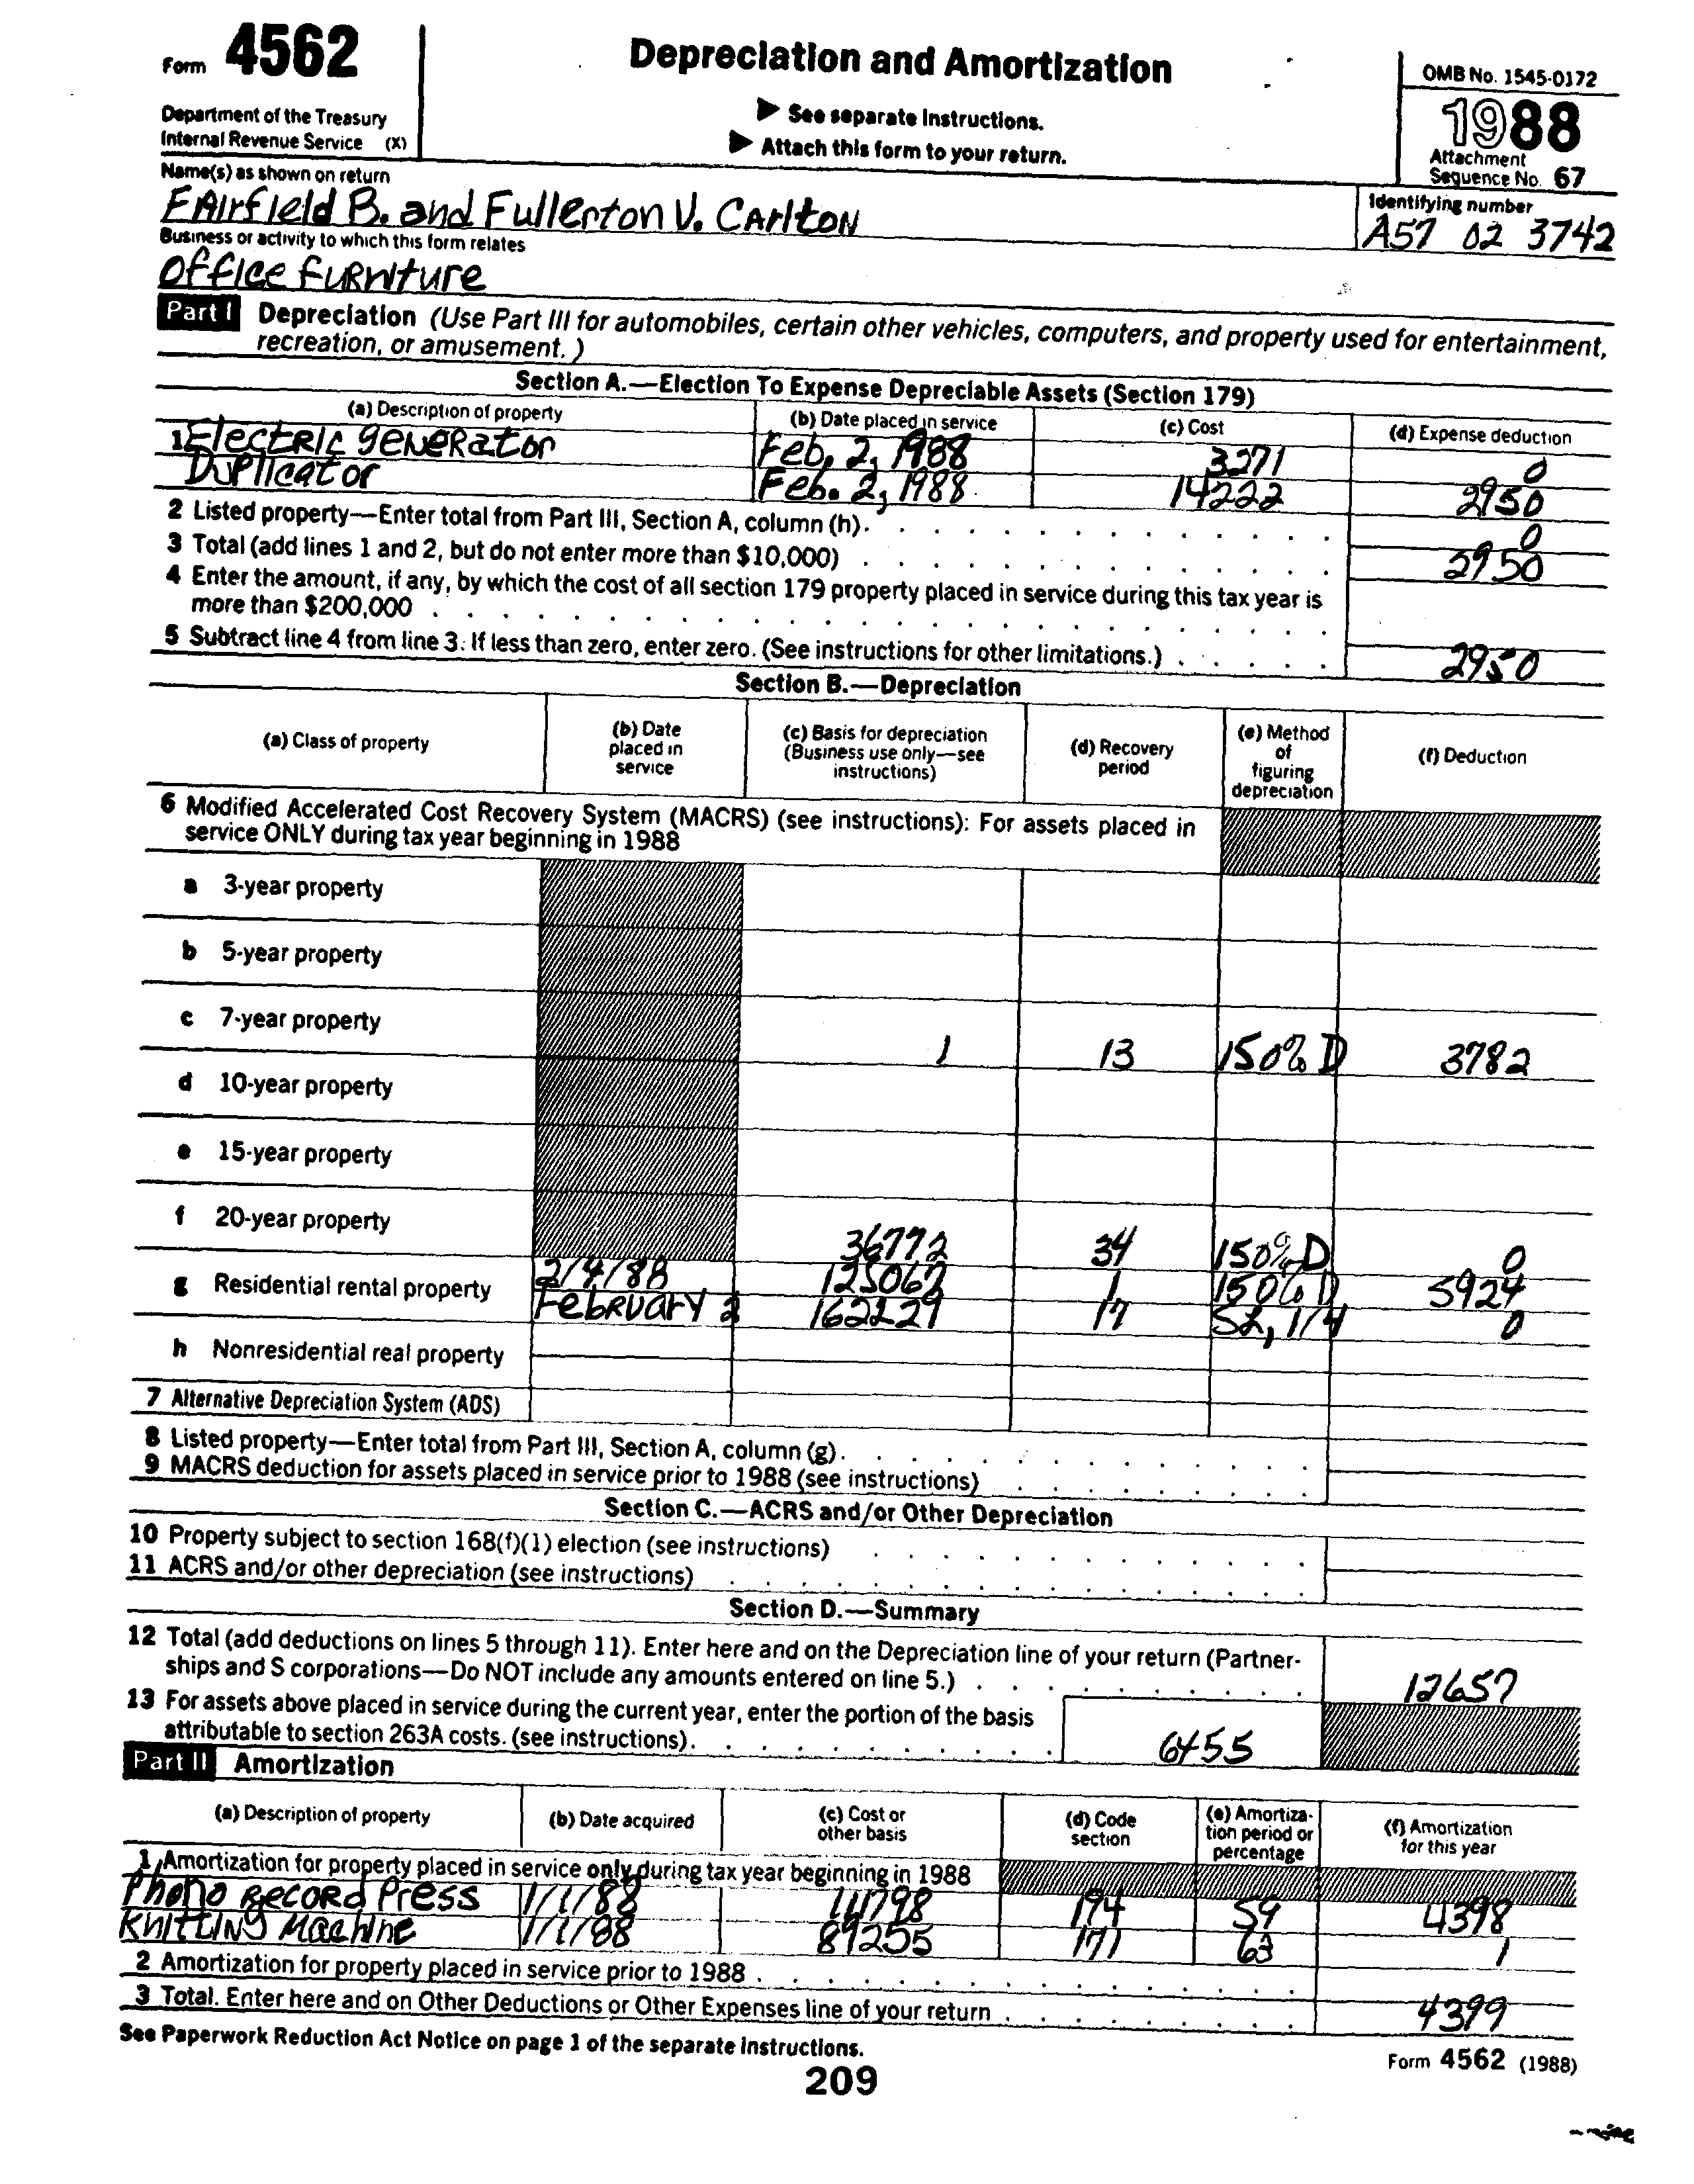 Form 4562
Department of the Treasury
Internal Revenue Service (X)
Depreciation and Amortization
▶ See separate Instructions.
▶ Attach this form to your return.
OMB No. 1545-0172
1988
Attachment
Sequence No. 67
Name(s) as shown on return
FAIrfield B. and Fullerton V. CArltoN
Identifying number
A57 02 3742
Business or activity to which this form relates
Office FURNiture
Part I Depreciation (Use Part III for automobiles, certain other vehicles, computers, and property used for entertainment,
recreation, or amusement.)
Section A.—Election To Expense Depreciable Assets (Section 179)
(a) Description of property (b) Date placed in service (c) Cost (d) Expense deduction
1 Electric generator Feb. 2, 1988 3271 0
Duplicator Feb. 2, 1988 14222 2950
2 Listed property—Enter total from Part III, Section A, column (h). 0
3 Total (add lines 1 and 2, but do not enter more than $10,000) 2950
4 Enter the amount, if any, by which the cost of all section 179 property placed in service during this tax year is
more than $200,000
5 Subtract line 4 from line 3. If less than zero, enter zero. (See instructions for other limitations.) 2950
Section B.—Depreciation
(a) Class of property
(b) Date
placed in
service
(c) Basis for depreciation
(Business use only—see
instructions)
(d) Recovery
period
(e) Method
of
figuring
depreciation
(f) Deduction
6 Modified Accelerated Cost Recovery System (MACRS) (see instructions): For assets placed in
service ONLY during tax year beginning in 1988
a 3-year property
b 5-year property
c 7-year property
1 13 150% D 3782
d 10-year property
e 15-year property
f 20-year property
36772 34 150% D 0
g Residential rental property 2/4/88 125062 1 150% D 5924
February 2 162229 17 SL, 1/4 0
h Nonresidential real property
7 Alternative Depreciation System (ADS)
8 Listed property—Enter total from Part III, Section A, column (g).
9 MACRS deduction for assets placed in service prior to 1988 (see instructions)
Section C.—ACRS and/or Other Depreciation
10 Property subject to section 168(f)(1) election (see instructions)
11 ACRS and/or other depreciation (see instructions)
Section D.—Summary
12 Total (add deductions on lines 5 through 11). Enter here and on the Depreciation line of your return (Partner-
ships and S corporations—Do NOT include any amounts entered on line 5.) 12657
13 For assets above placed in service during the current year, enter the portion of the basis
attributable to section 263A costs. (see instructions). 6455
Part II Amortization
(a) Description of property
(b) Date acquired
(c) Cost or
other basis
(d) Code
section
(e) Amortiza-
tion period or
percentage
(f) Amortization
for this year
1 Amortization for property placed in service only during tax year beginning in 1988
Phono Record Press 1/1/88 14798 194 59 4398
Knitting Machine 1/1/88 89255 171 63 1
2 Amortization for property placed in service prior to 1988
3 Total. Enter here and on Other Deductions or Other Expenses line of your return 4399
See Paperwork Reduction Act Notice on page 1 of the separate Instructions.
Form 4562 (1988)
209